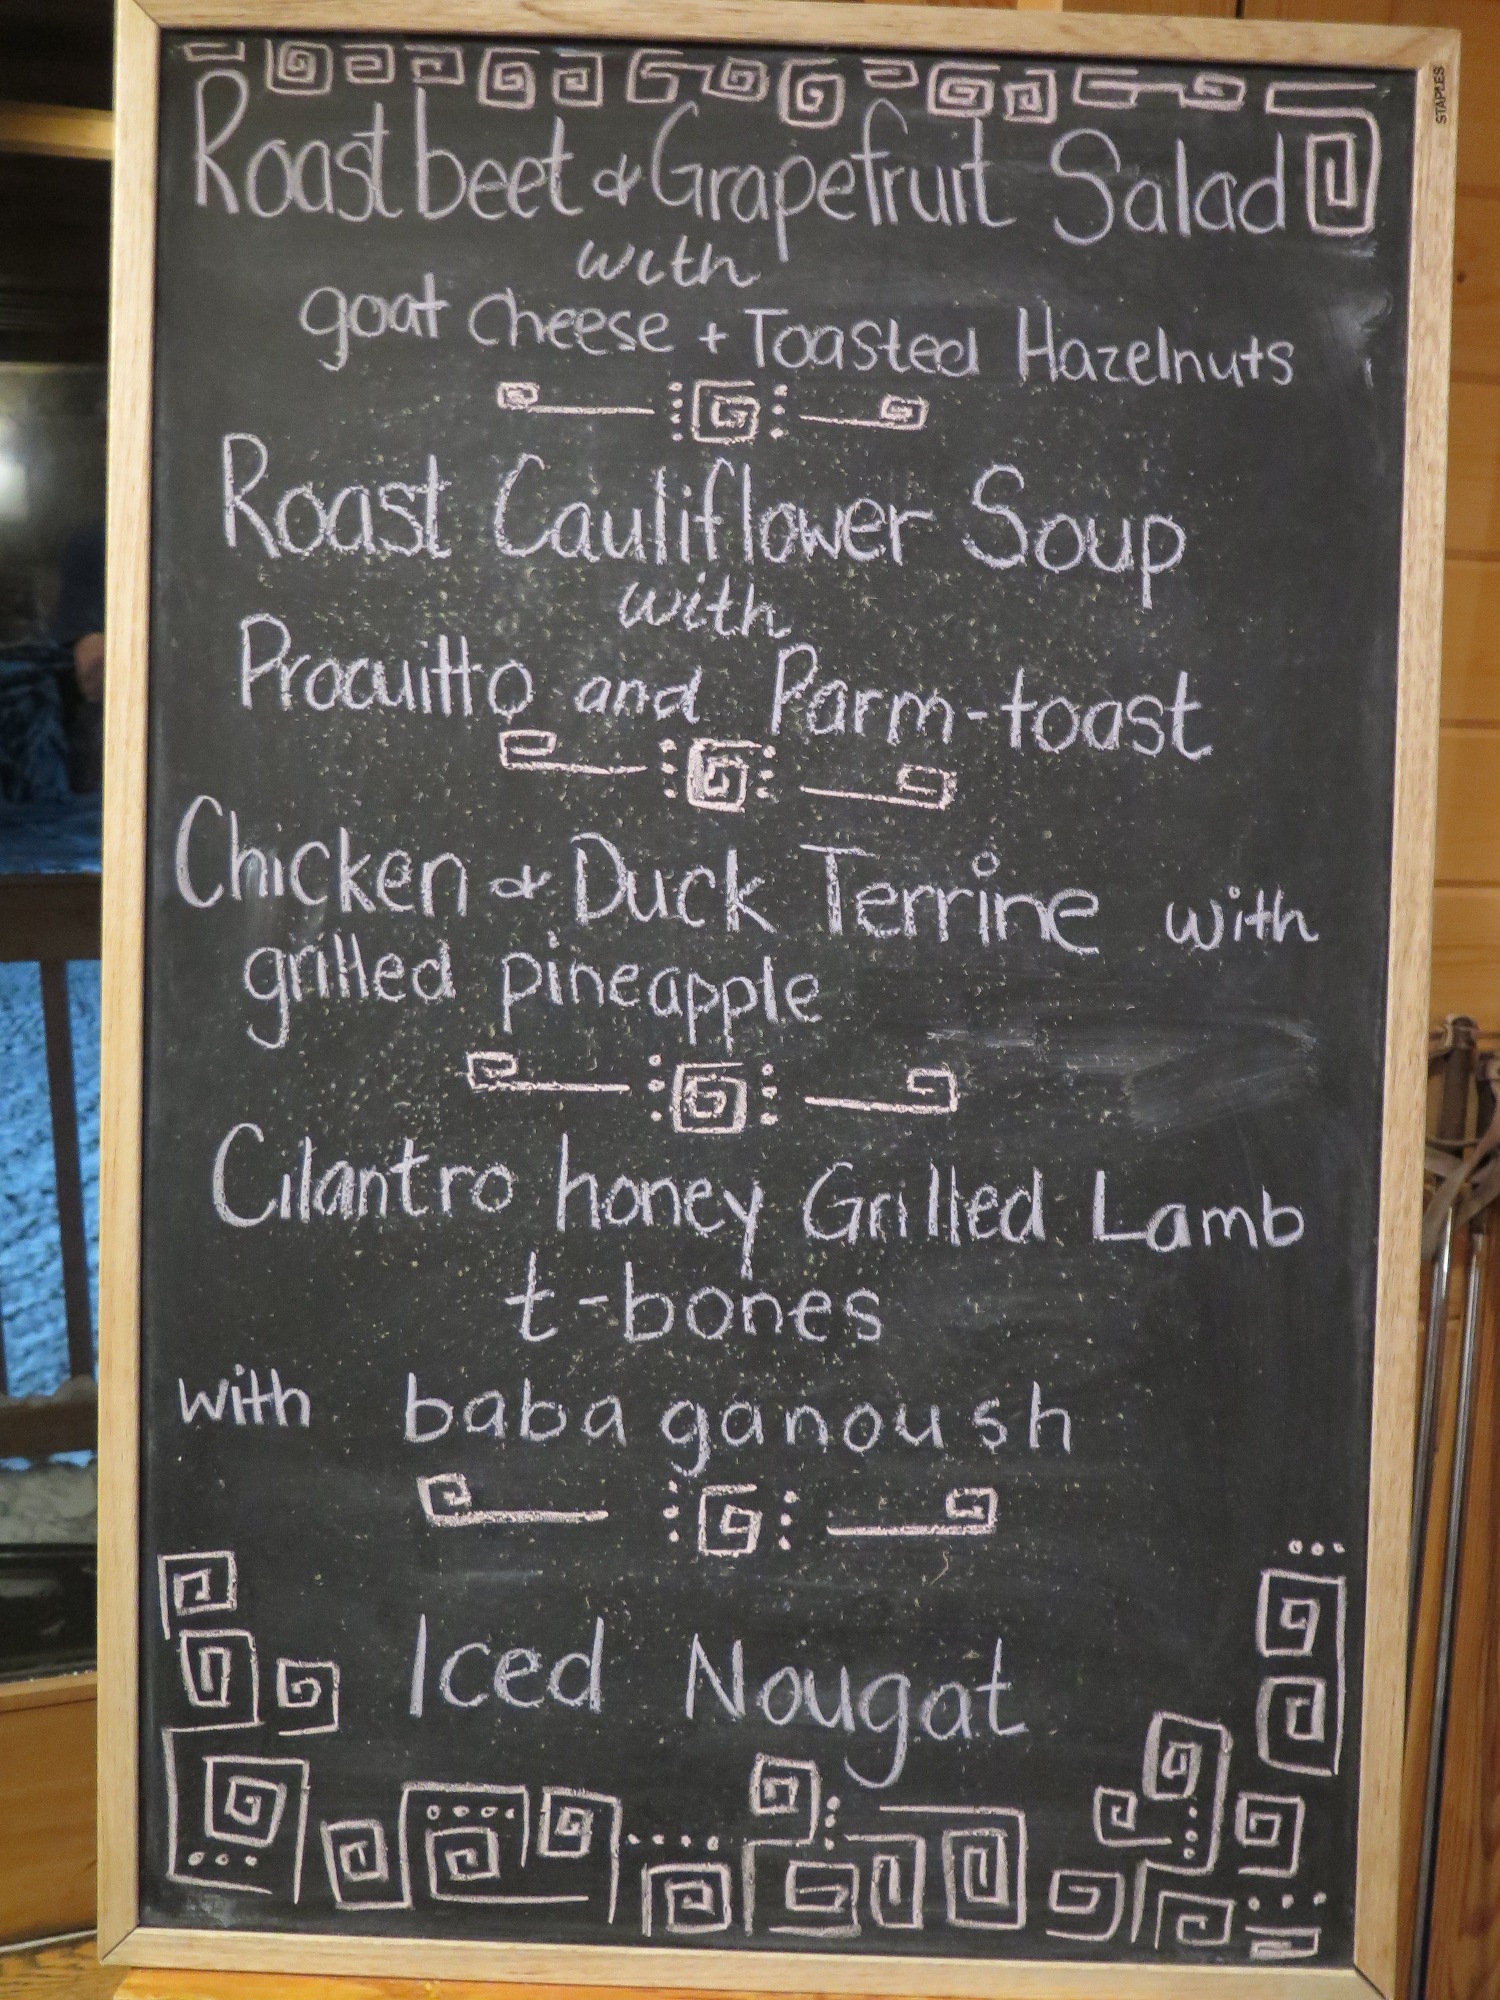 STAPLES
Roast beet & Grapefruit Salad
with
goat cheese + Toasted Hazelnuts
Roast Cauliflower Soup
with
Procuitto and Parm-toast
Chicken & Duck Terrine with
grilled pineapple
Cilantro honey Grilled Lamb
t-bones
with baba ganoush
Iced Nougat